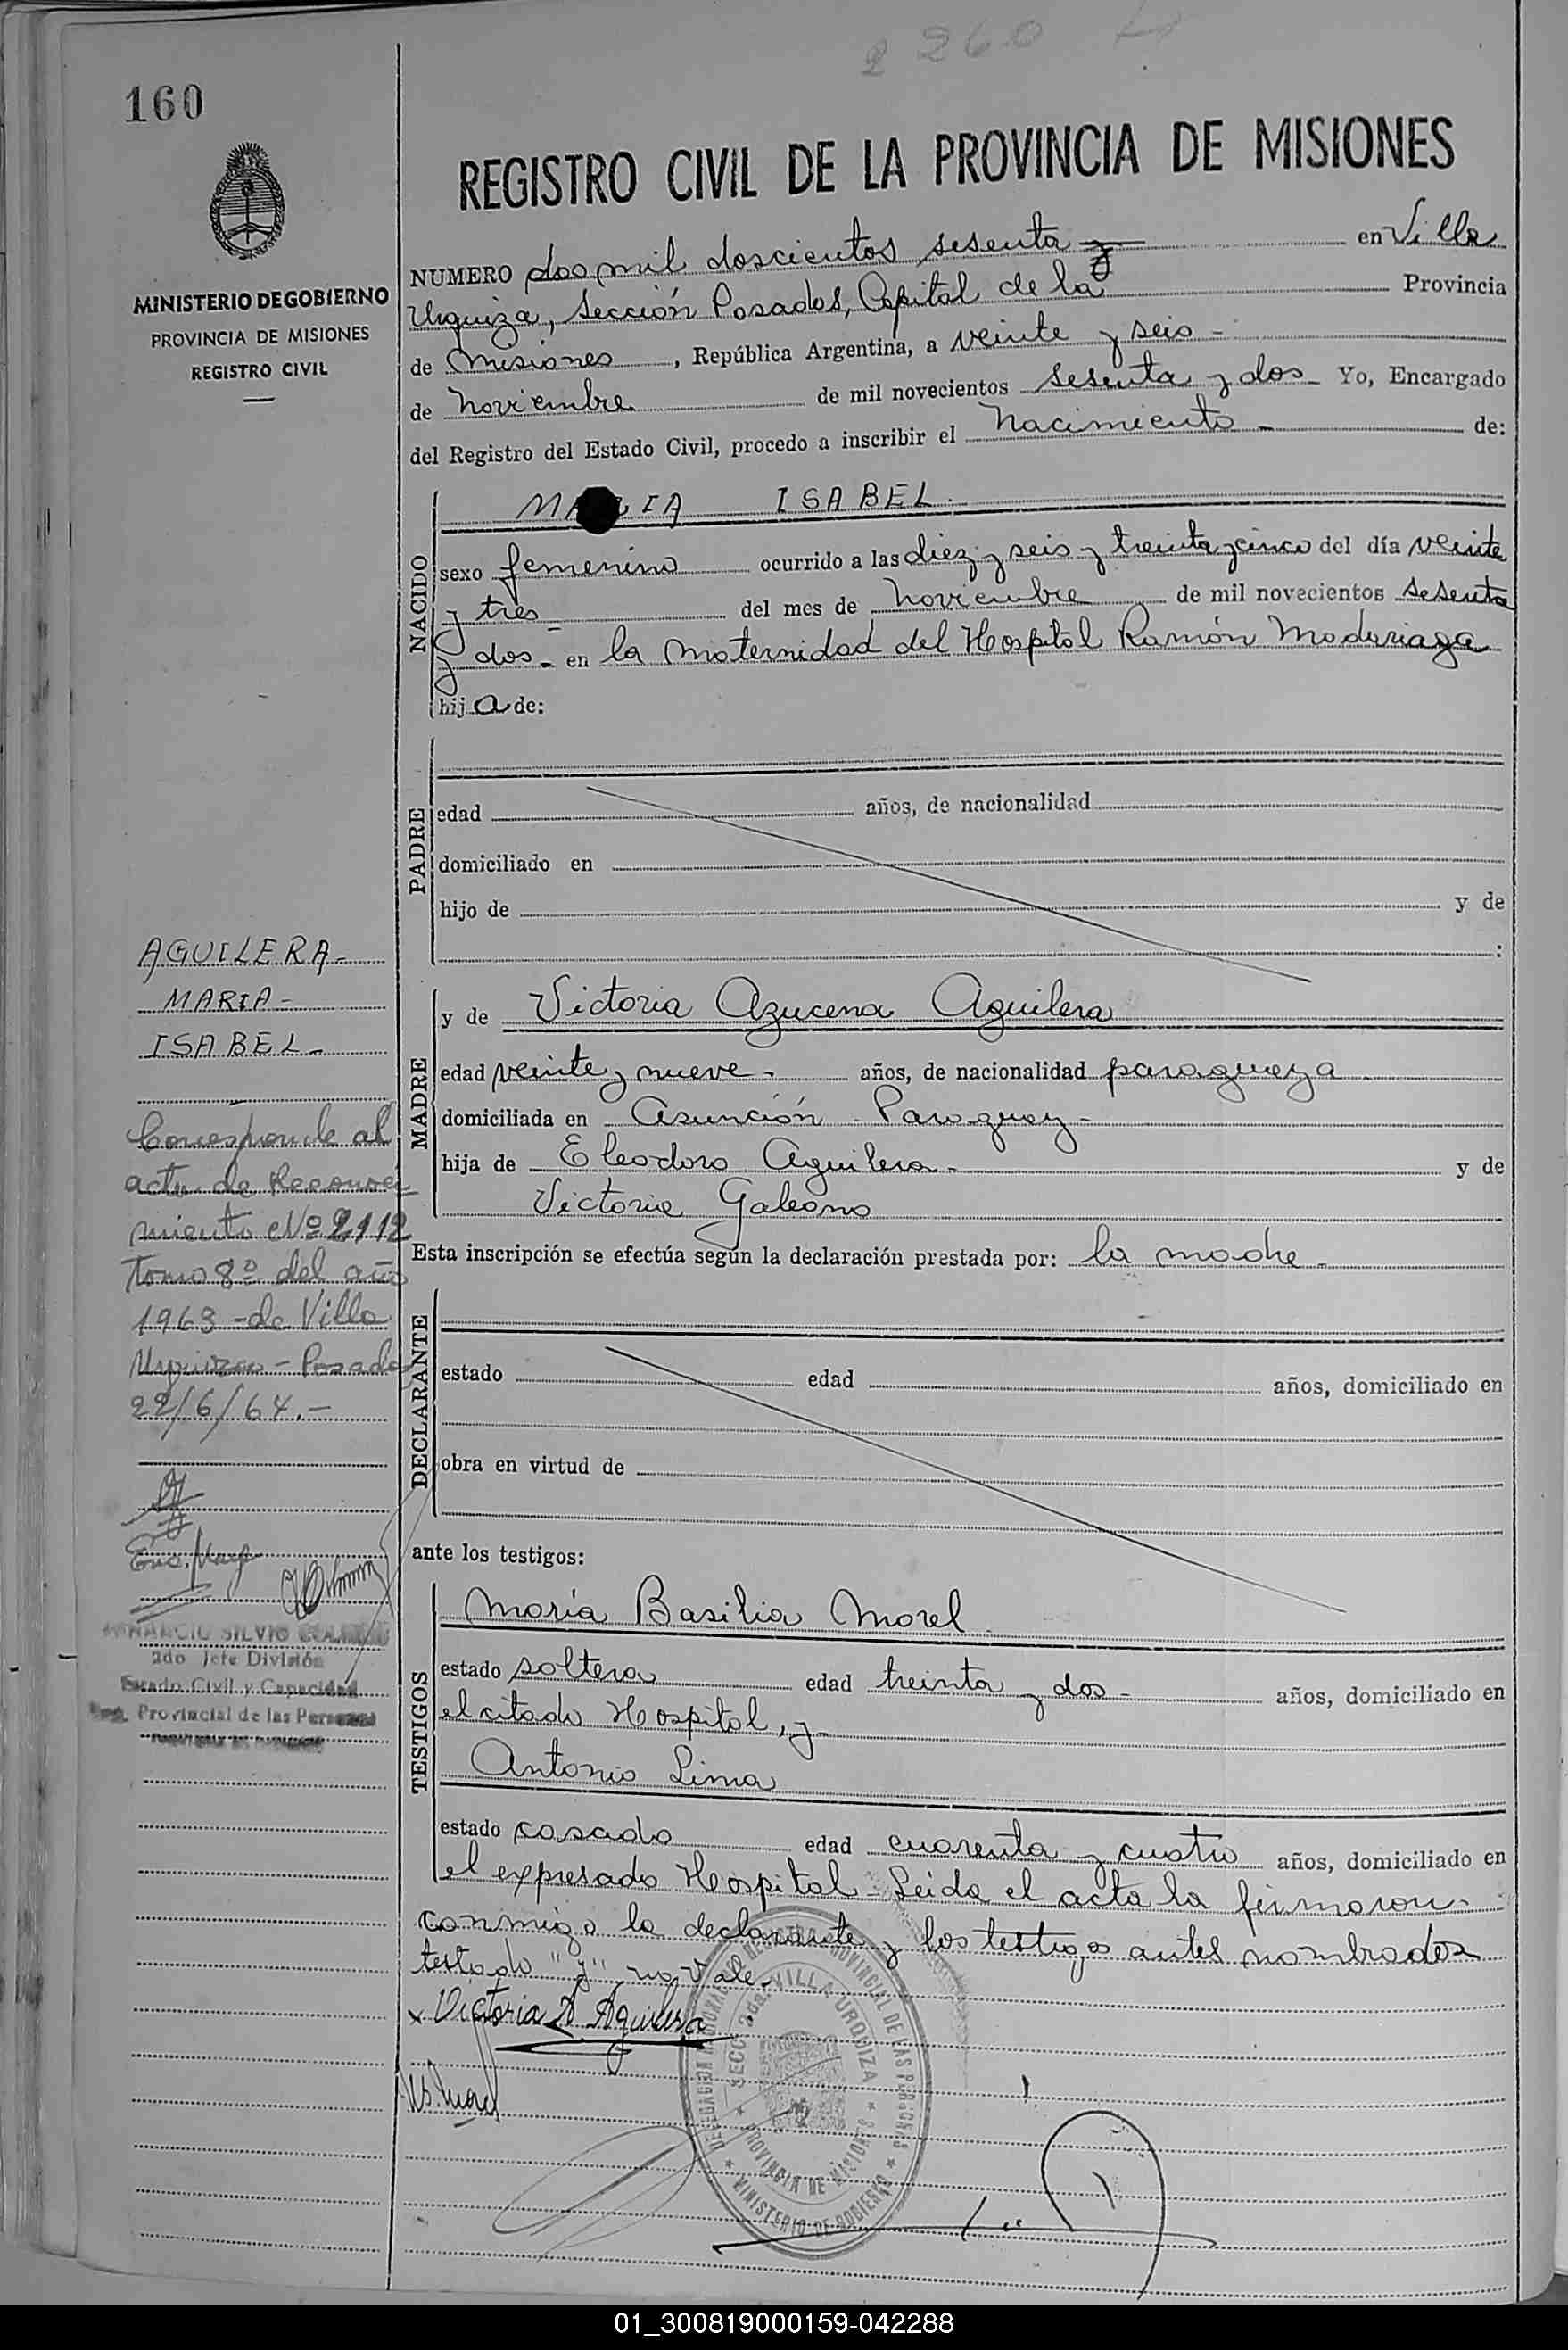 2260
160
REGISTRO CIVIL DE LA PROVINCIA DE MISIONES
MINISTERIO DE GOBIERNO
PROVINCIA DE MISIONES
REGISTRO CIVIL
NUMERO dos mil doscientos sesenta y en Villa
Urquiza, Sección Posadas, Capital de la Provincia
de Misiones, República Argentina, a veinte y seis -
de Noviembre de mil novecientos sesenta y dos - Yo, Encargado
del Registro del Estado Civil, procedo a inscribir el Nacimiento - de:
NACIDO
MARIA ISABEL.
sexo femenino ocurrido a las diez y seis y treinta y cinco del día veinte
y tres - del mes de Noviembre de mil novecientos sesenta
y dos - en la Maternidad del Hospital Ramón Madariaga
hija de:
PADRE
edad años, de nacionalidad
domiciliado en
hijo de y de
:
MADRE
y de Victoria Azucena Aguilera
edad veinte y nueve - años, de nacionalidad paraguaya
domiciliada en Asunción - Paraguay -
hija de Eleodoro Aguilera - y de
Victoria Galeano
Esta inscripción se efectúa según la declaración prestada por: la madre -
DECLARANTE
estado edad años, domiciliado en
obra en virtud de
ante los testigos:
TESTIGOS
María Basilia Morel
estado soltera edad treinta y dos - años, domiciliado en
el citado Hospital, y -
Antonio Lima
estado casado edad cuarenta y cuatro años, domiciliado en
el expresado Hospital - Leída el acta la firmaron -
conmigo la declarante y los testigos antes nombrados
testado "y" no vale -
x Victoria A Aguilera
B. Morel
AGUILERA -
MARIA -
ISABEL -
Corresponde al
acta de Reconoci
miento Nº 2112
Tomo 8º del año
1963 - de Villa
Urquiza - Posadas
22/6/64.-
Enc.
SILVIO
2do Jefe División
Estado Civil y Capacidad
Reg. Provincial de las Personas
DELEGACION REGISTRO PROVINCIAL DE LAS PERSONAS
SECC. 2da. VILLA URQUIZA
PROVINCIA DE MISIONES
MINISTERIO DE GOBIERNO
01_300819000159-042288